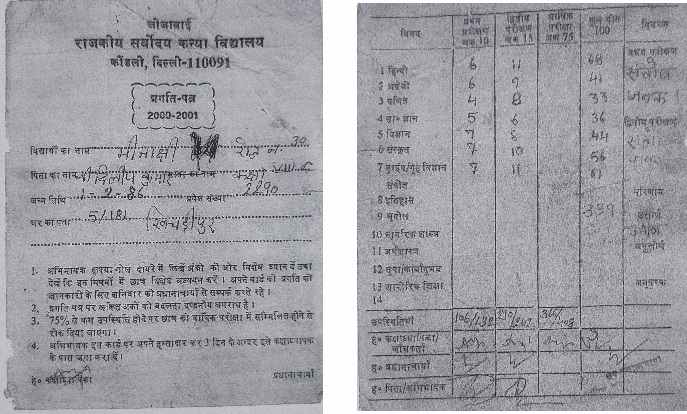 जीजाबाई
राजकीय सर्वोदय कन्या विद्यालय
कोंडली, दिल्ली-110091
प्रगति-पत्र
2000-2001
विद्यार्थी का नाम मीनाक्षी रोल नं. 30
पिता का नाम दिलीप कुमार कक्षा
जन्म तिथि 1-2-86 प्रवेश संख्या 2290
घर का पता 5/181 खिचड़ीपुर
1. अभिभावक कृपया गोल दायरे में लिखे अंकों की ओर विशेष ध्यान दें तथा
देखें कि इन विषयों में छात्र विशेष अध्ययन करें। अपने वार्ड की प्रगति की
जानकारी के लिए शनिवार को प्रधानाचार्या से सम्पर्क करते रहें।
2. प्रगति पत्र पर अंकित अंकों को बदलना दण्डनीय अपराध है।
3. 75% से कम उपस्थिति होने पर छात्र को वार्षिक परीक्षा में सम्मिलित होने से
रोक दिया जाएगा।
4. अभिभावक इस कार्ड पर अपने हस्ताक्षर कर 3 दिन के अन्दर इसे कक्षाध्यापक
के पास जमा करा दें।
ह० कक्षाध्यापिका प्रधानाचार्या
विषय प्रथम परीक्षण अंक 10 द्वितीय परीक्षण अंक 15 वार्षिक परीक्षा अंक 75 कुल योग 100 विवरण
1 हिन्दी 6 11 68 प्रथम परीक्षण
2 अंग्रेजी 6 9 41
3 गणित 4 8 33
4 सा० ज्ञान 5 6 36 द्वितीय परीक्षण
5 विज्ञान 7 8 44
6 संस्कृत 7 10 56
7 ड्राइंग/गृह विज्ञान 7 11 61
संगीत
8 इतिहास परिणाम
9 भूगोल 339 उत्तीर्ण
10 नागरिक शास्त्र
11 अर्थशास्त्र अनुत्तीर्ण
12
13 शारीरिक शिक्षा
14
उपस्थितियां 106/132
ह० कक्षाध्यापिका/
ह० प्रधानाचार्या
ह० पिता/अभिभावक